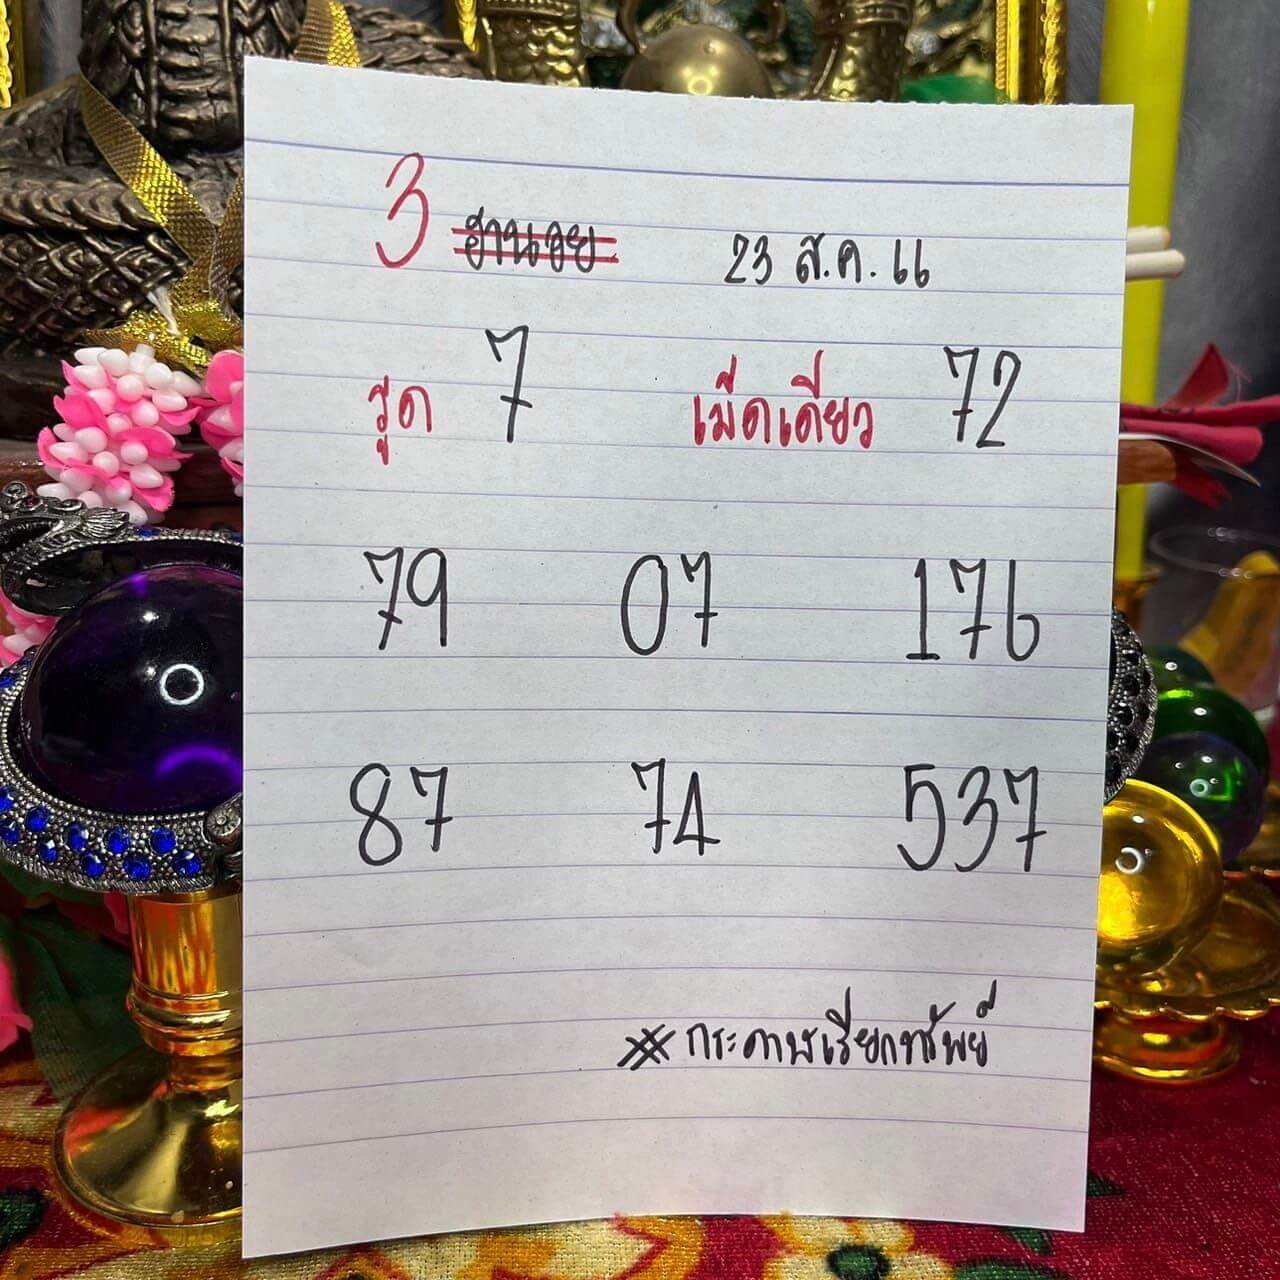 3 ฮานอย 23 ส.ค. 66
รูด 7 เม็ดเดียว 72
79 07 176
87 74 537
กระดาษเรียกทรัพย์